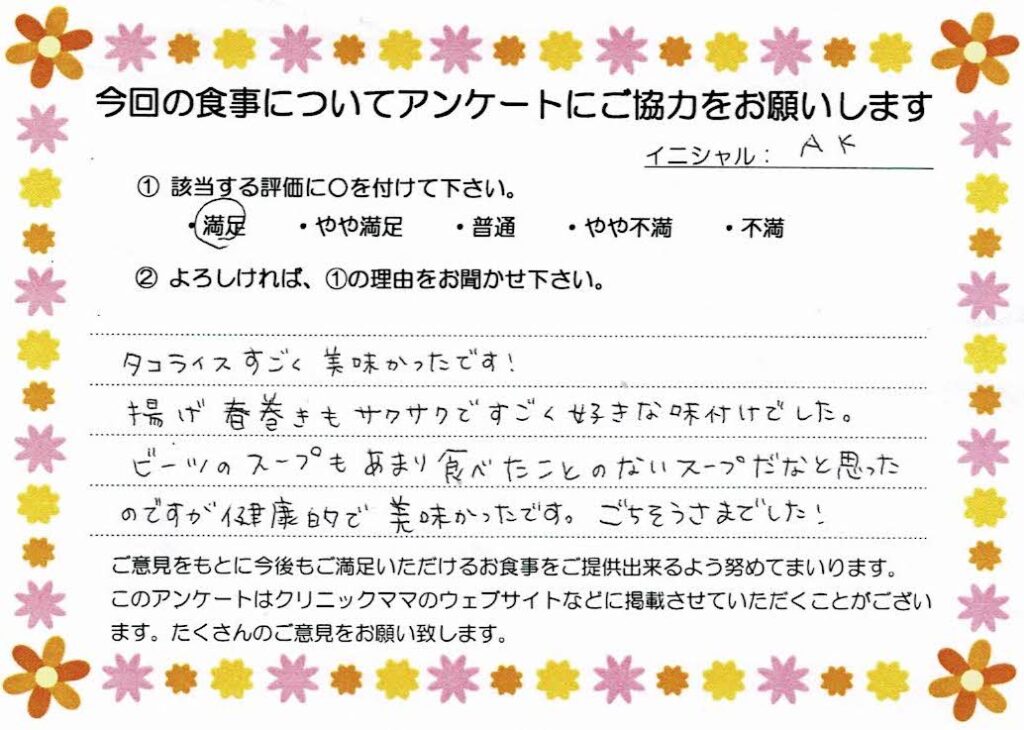 今回の食事についてアンケートにご協力をお願いします
イニシャル： AK
① 該当する評価に〇を付けて下さい。
・満足 ・やや満足 ・普通 ・やや不満 ・不満
② よろしければ、①の理由をお聞かせ下さい。
タコライスすごく美味かったです!
揚げ春巻きもサクサクですごく好きな味付けでした。
ビーツのスープもあまり食べたことのないスープだなと思った
のですが健康的で美味かったです。ごちそうさまでした!
ご意見をもとに今後もご満足いただけるお食事をご提供出来るよう努めてまいります。
このアンケートはクリニックママのウェブサイトなどに掲載させていただくことがござい
ます。たくさんのご意見をお願い致します。